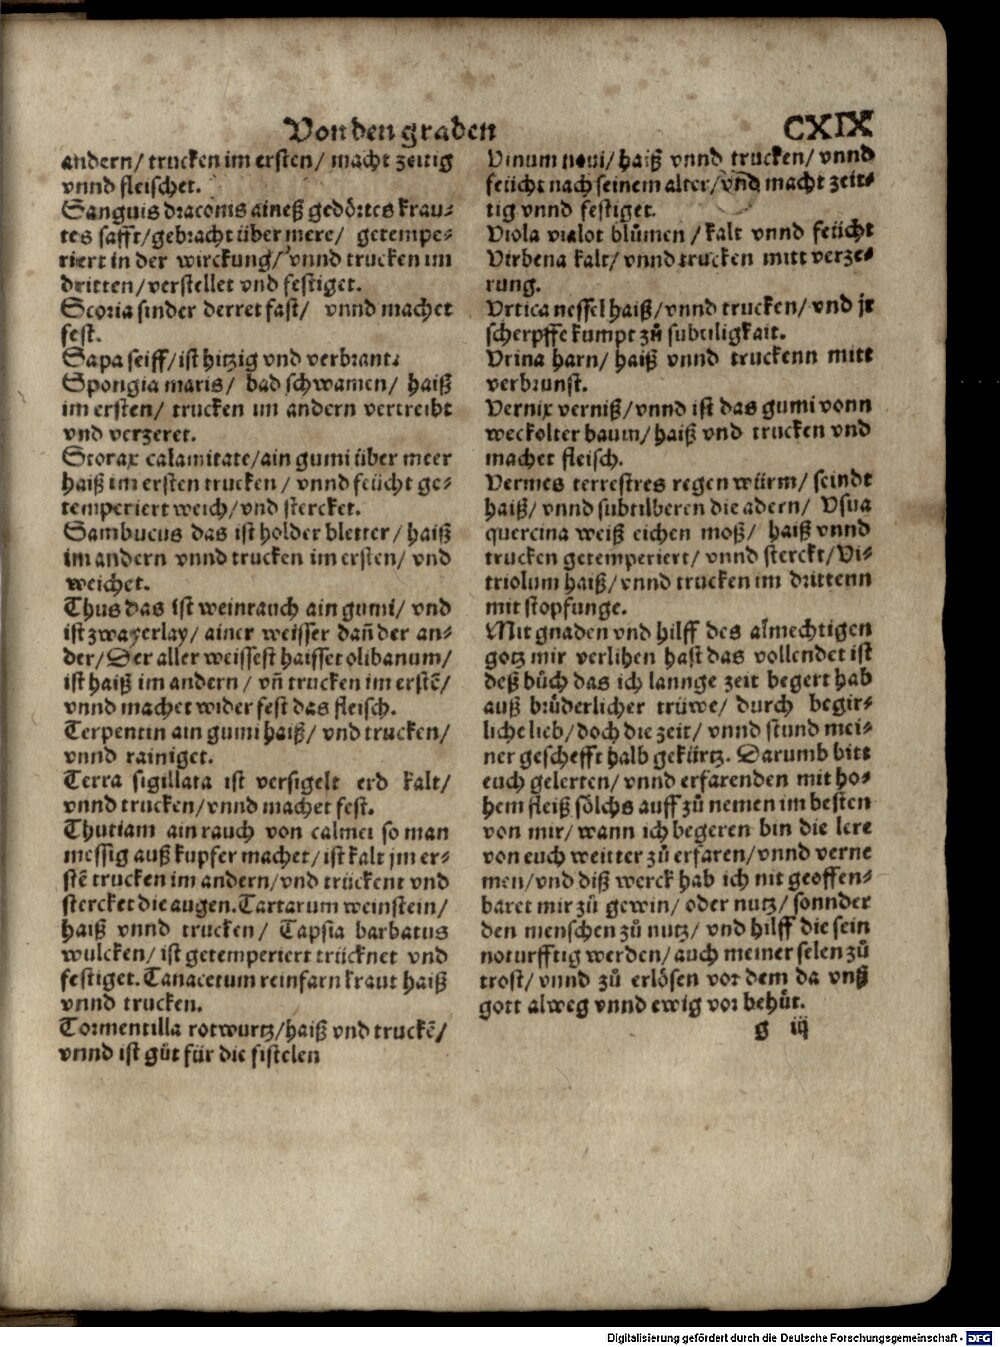 Von den graden
CXIX
andern/ trucken im ersten/ macht zeitig
vnnd fleischet.
Sanguis draconis aineß gedörtes krau-
tes safft/gebracht über mere/ getempe-
riert in der wirckung/ vnnd trucken im
dritten/verstellet vnd festiget.
Scoria sinder derret fast/ vnnd machet
fest.
Sapa seiff/ist hitzig vnd verbrant.
Spongia maris/ bad schwamen/ haiß
im ersten/ trucken im andern vertreibt
vnd verzeret.
Storax calamitate/ain gumi über meer
haiß im ersten trucken/ vnnd feücht ge-
temperiert weich/vnd stercket.
Sambucus das ist holder bletter/ haiß
im andern vnnd trucken im ersten/ vnd
weichet.
Thus das ist weinrauch ain gumi/ vnd
ist zwayerlay/ ainer weisser dañ der an-
der/Der aller weissest haisset olibanum/
ist haiß im andern/ vñ trucken im erstē/
vnnd machet wider fest das fleisch.
Terpentin ain gumi haiß/ vnd trucken/
vnnd rainiget.
Terra sigillata ist versigelt erd kalt/
vnnd trucken/vnnd machet fest.
Thutiam ain rauch von calmei so man
messig auß kupfer machet/ist kalt jm er-
stē trucken im andern/vnd trückent vnd
stercket die augen.Tartarum weinstein/
haiß vnnd trucken/ Tapsia barbatus
wulcken/ist getemperiert trücknet vnd
festiget.Tanacetum reinfarn kraut haiß
vnnd trucken.
Tormentilla rotwurtz/haiß vnd truckē/
vnnd ist gůt für die fistelen
Vinum noui/haiß vnnd trucken/vnnd
feücht nach seinem alter/vnd macht zeit-
tig vnnd festiget.
Viola vialot blůmen/kalt vnnd feücht
Virbena kalt/vnnd trucken mitt verze-
rung.
Vrtica nessel haiß/vnnd trucken/vnd jr
scherpffe kumpt zů subtiligkait.
Vrina harn/haiß vnnd truckenn mitt
verbrunst.
Vernix verniß/vnnd ist das gumi vonn
weckolter baum/haiß vnd trucken vnd
machet fleisch.
Vermes terrestres regen würm/ seindt
haiß/vnnd subtilberen die adern/ Vsua
quercina weiß eichen moß/ haiß vnnd
trucken getemperiert/vnnd sterckt/Vi-
triolum haiß/vnnd trucken im drittenn
mit stopfunge.
Mit gnaden vnd hilff des almechtigen
gotz mir verlihen hast das vollendet ist
deß bůch das ich lannge zeit begert hab
auß brůderlicher trüwe/ durch begir-
liche lieb/doch die zeit/ vnnd stund mei-
ner geschefft halb gekürtz. Darumb bitt
euch gelerten/vnnd erfarenden mit ho-
hem fleiß sölchs auff zů nemen im besten
von mir/wann ich begeren bin die lere
von euch weitter zů erfaren/vnnd verne
men/vnd diß werck hab ich nit geoffen-
baret mir zů gewin/oder nutz/sonnder
den menschen zů nutz/vnd hilff die sein
noturfftig werden/auch meiner selen zů
trost/vnnd zů erlösen vor dem da vnß
gott alweg vnnd ewig vor behüt.
g iij
Digitalisierung gefördert durch die Deutsche Forschungsgemeinschaft - DFG